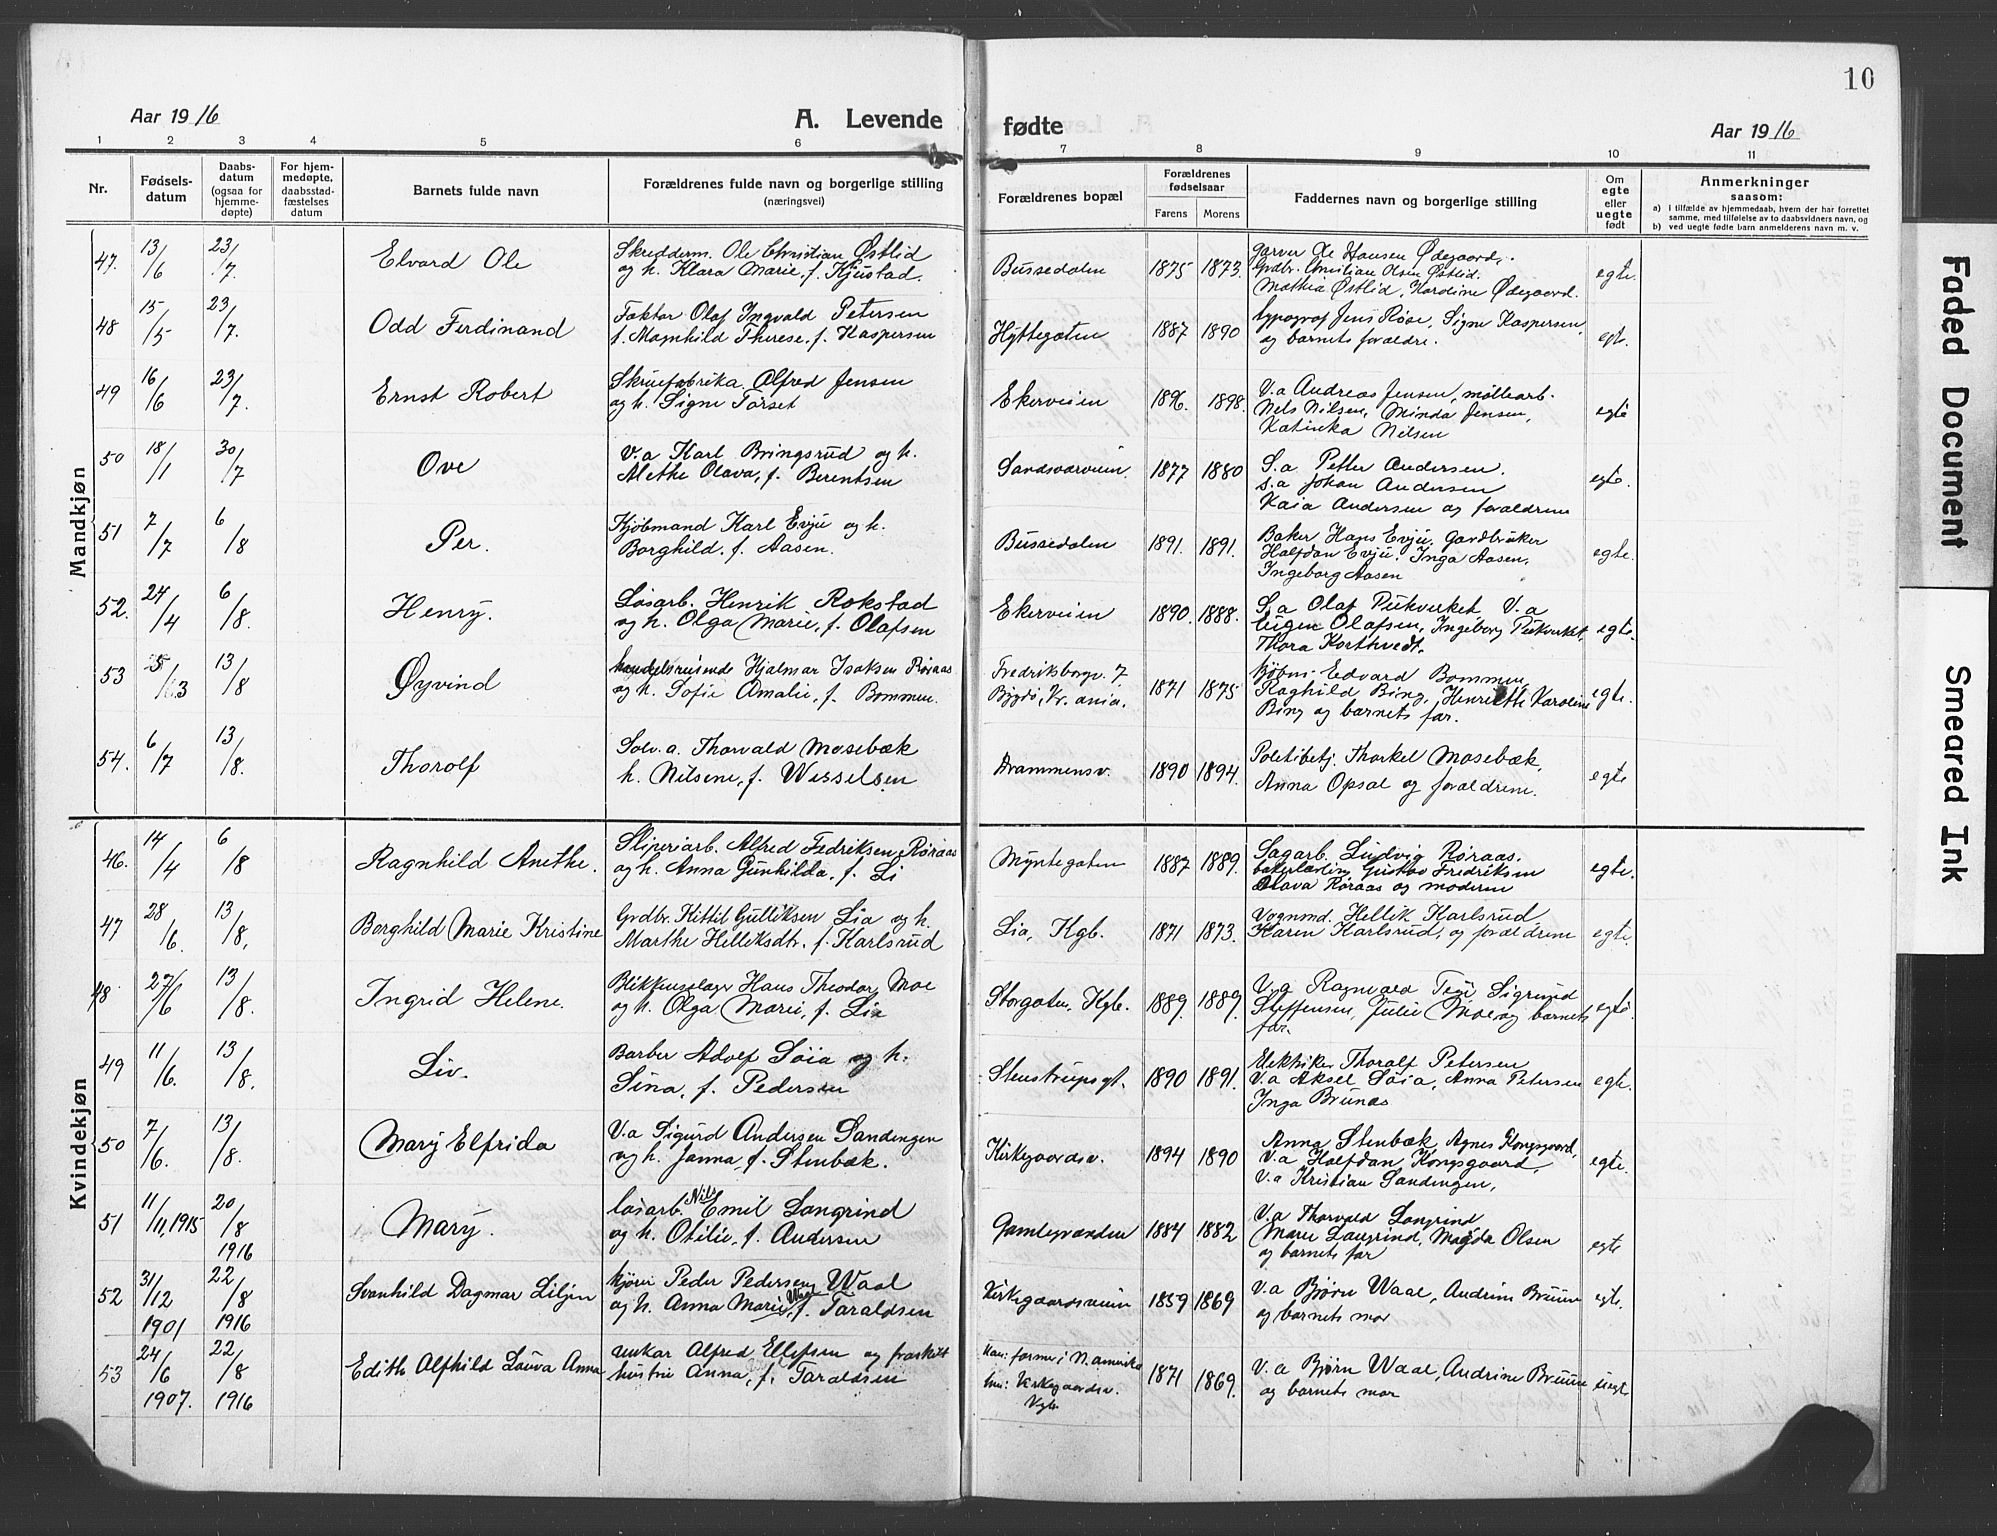 10
Aar 1916
A. Levende fødte
Aar 1916
1 2 3 4 5 6 7 8 9 10 11
Nr.
Fødselsdatum
Daabsdatum (ogsaa for hjemmedøpte)
For hjemmedøpte, daabsstadfæstelses datum
Barnets fulde navn
Forældrenes fulde navn og borgerlige stilling (næringsvei)
Forældrenes bopæl
Forældrenes fødselsaar
Farens
Morens
Faddernes navn og borgerlige stilling
Om egte eller uegte født
Anmerkninger
saasom:
a) i tilfælde av hjemmedaab, hvem der har forrettet samme, med tilføielse av to daabsvidners navn, og
b) ved uegte fødte barn anmelderens navn m. v.
Mandkjøn
47. 13/6 23/7. Elvard Ole
Skredderm. Ole Christian Østlid
og h. Klara Marie, f. Kjustad.
Bussedalen 1875 1873.
garver Ole Hansen Ødegaard,
Grdbr. Christian Olsen Østlid.
Mathia Østlid, Karoline Ødegaard.
egte.
48 15/5 23/7. Odd Ferdinand
Faktor Olaf Ingvald Petersen
f. Magnhild Therese, f. Kaspersen
Hyttegaten 1887 1890
typograf Jens Røise, Signe Kaspersen,
og barnets forældre.
egte.
49 16/6 23/7. Ernst Robert
Skruefabrika. Alfred Jensen
og h. Signe Torset
Ekerveien 1896. 1898.
V.a Andreas Jensen, møllearb.
Nels Nilsen, Minda Jensen,
Katinka Nilsen
egte
50 18/1 30/7 Ove
V.a Karl Bringsrud og h.
Alethe Olava, f. Berentsen
Sandsværveien. 1877 1880
S.a. Petter Andersen.
S.a Johan Andersen
Kaia Andersen og forældrene
egte.
51 7/7 6/8 Per.
Kjøbmand Karl Evju og h.
Borghild, f. Aasen.
Bussedalen 1891. 1891.
Baker Hans Evju, Gardbruker
Halfdan Evju, Inga Aasen,
Ingeborg Aasen
egte.
52. 24/4 6/8. Henry.
Løsarb. Henrik Rokstad
og h. Olga Marie, f. Olafsen
Ekerveien 1890. 1888.
S.a Olaf Pukverket V.a
Eugen Olafsen, Ingeborg Pukverket,
Thora Korthvedt.
egte.
53 5/3 13/8 Øyvind
handelsreisende Hjalmar Isaksen Røraas
og h. Sofie Amalie, f. Bommen.
Fredriksborgv. 7
Bygdø, Kr. ania. 1871 1875
kjøbm. Edvard Bommen,
Raghild Bing, Henriette Karoline
Bing og barnets far.
egte.
54. 6/7 13/8. Thorolf
Sølv. a. Thorvald Mosebæk
h. Nilsine, f. Wesselsen
Drammensv. 1890 1894.
Politibetj. Thorkel Mosebæk,
Anna Opsal og forældrene.
egte
Kvindekjøn
46. 14/4 6/8 Ragnhild Anethe.
Sliperiarb. Alfred Fedriksen Røraas
og h. Anna Gunhilda, f. Li
Myntegaten 1887 1889.
Sagarb. Ludvig Røraas.
bakerlærling Gustav Fredriksen
Olava Røraas og moderen
egte.
47 28/6. 13/8. Borghild Marie Kristine
Grdbr. Kittil Gulliksen Lia og h.
Marthe Helliksdtr. f. Karlsrud
Lia, Kgb. 1871 1873.
Vognmd. Hellik Karlsrud
Karen Karlsrud, og forældrene
egte.
48 27/6 13/8. Ingrid Helene.
Blikkenslager Hans Theodor Moe
og h. Olga Marie, f. Lia
Storgaten, Kgb. 1889. 1889.
V.a Ragnvald Sigrund
Steffensen, Julie Moe og barnets
far.
egte.
49 11/6. 13/8. Liv.
Barber Adolf Søia og h.
Sina, f. Pedersen
Stenstrupsgt. 1890 1891.
Elektriker Thoralf Petersen
V.a Aksel Søia, Anna Petersen
Inga Brunæs
egte.
50 7/6. 13/8. Mary Elfrida
V.a Sigurd Andersen Sandengen
og h. Janna, f. Stenbæk.
Kirkegaardsv. 1894 1890
Anna Stenbæk, Agnes Kongsgaard,
V.a Halfdan Kongsgaard,
V.a Kristian Sandengen,
egte.
51 11/11, 1915 20/8 1916 Mary.
løsarb. Nils Emil Langrind
og h. Otilie, f. Andersen
Gamlegrænden 1884 1882
V.a Thorvald Langrind
Marie Langrind, Magda Olsen
og barnets far
egte
52 31/12 1901 22/8 1916 Svanhild Dagmar Liljen
kjører Peder Pedersen Waal
og h. Anna Marie Waal, f. Taraldsen
Kirkegaardsveien 1859 1869
V.a Bjørn Waal, Andrine Bruun
og barnets mor
egte.
53 24/6 1907. 22/8 1916 Edith Alfhild Louva Anna
unkar Alfred Ellefsen og fraskilt
hustru Anna, f. Taraldsen
Han: farmer i N. amerika
hun: Kirkegaardsv.
Kgb. 1871 1869.
V.a Bjørn Waal, Andrine Bruun
og barnets mor
uegte
Faded Document
Smeared Ink